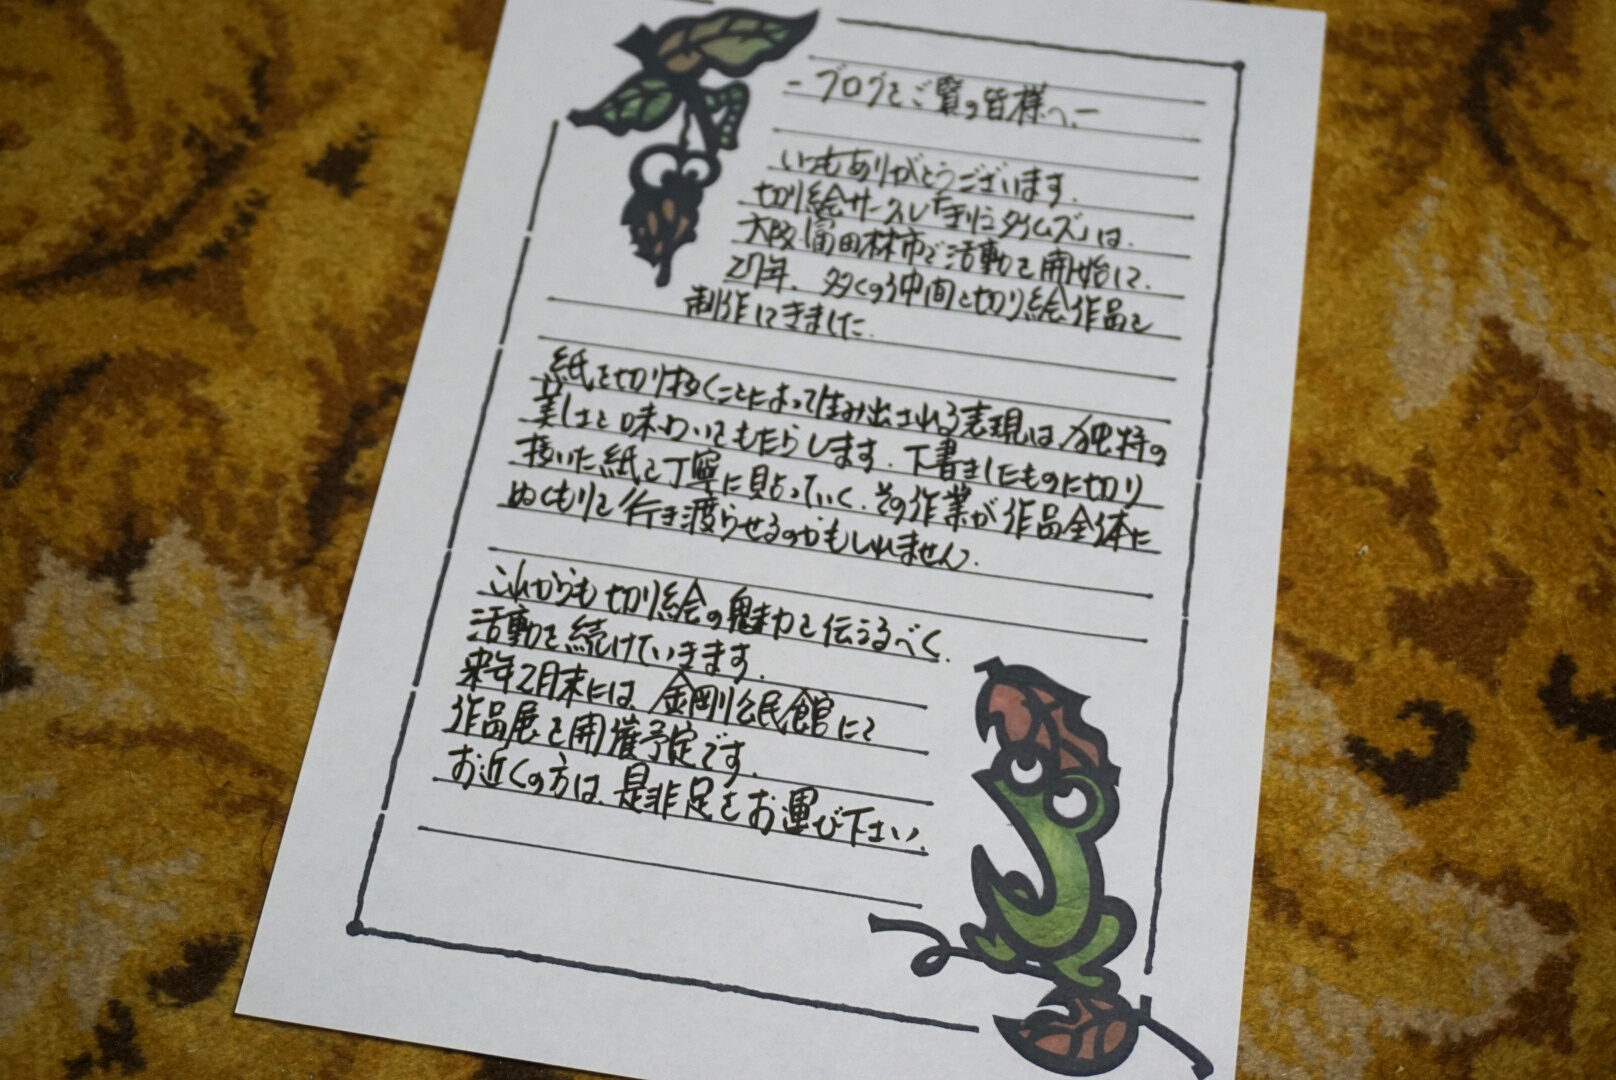 -ブログをご覧の皆様へ.-
いつもありがとうございます.
切り絵サークル「手しごとタイムズ」は.
大阪.富田林市で活動を開始して.
27年. 多くの仲間と切り絵作品を
制作してきました.
紙を切り抜くことによって生み出される表現は,独特の
美しさと味わいをもたらします. 下書きしたものに切り
抜いた紙を丁寧に貼っていく.その作業が作品全体に
ぬくもりを行き渡らせるのかもしれません.
これからも切り絵の魅力を伝うるべく.
活動を続けていきます.
来年2月末には. 金剛公民館にて
作品展を開催予定です.
お近くの方は.是非足をお運び下さい.